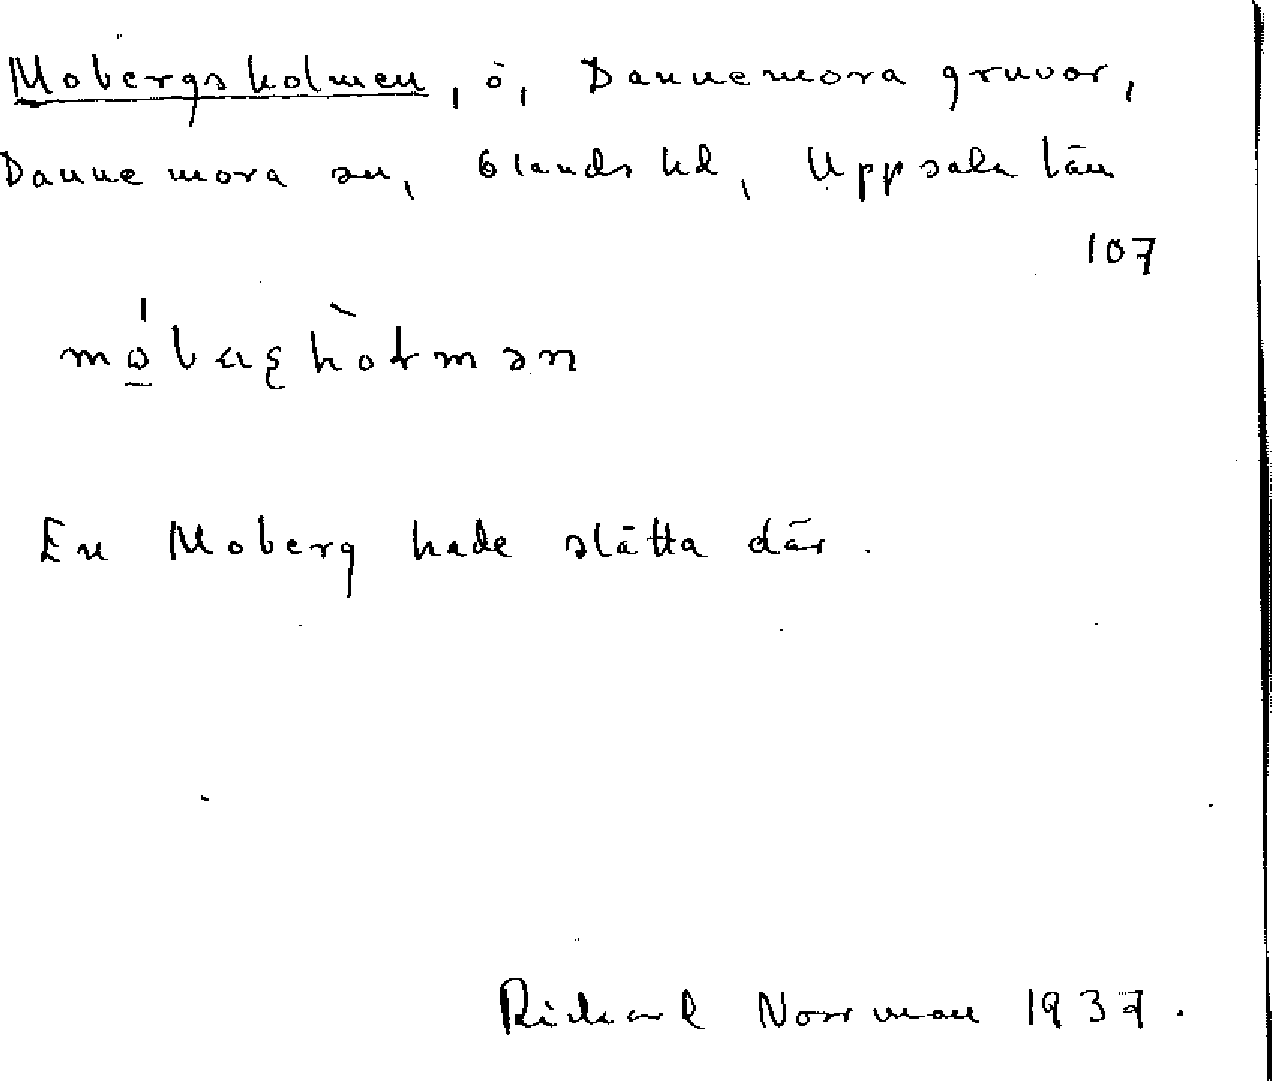 Mobergsholmen, ö, Dannemora gruvor,
Dannemora sn, Olands hd, Uppsala län
107
En Moberg hade slåtta där.
Rickard Norrman 1937.